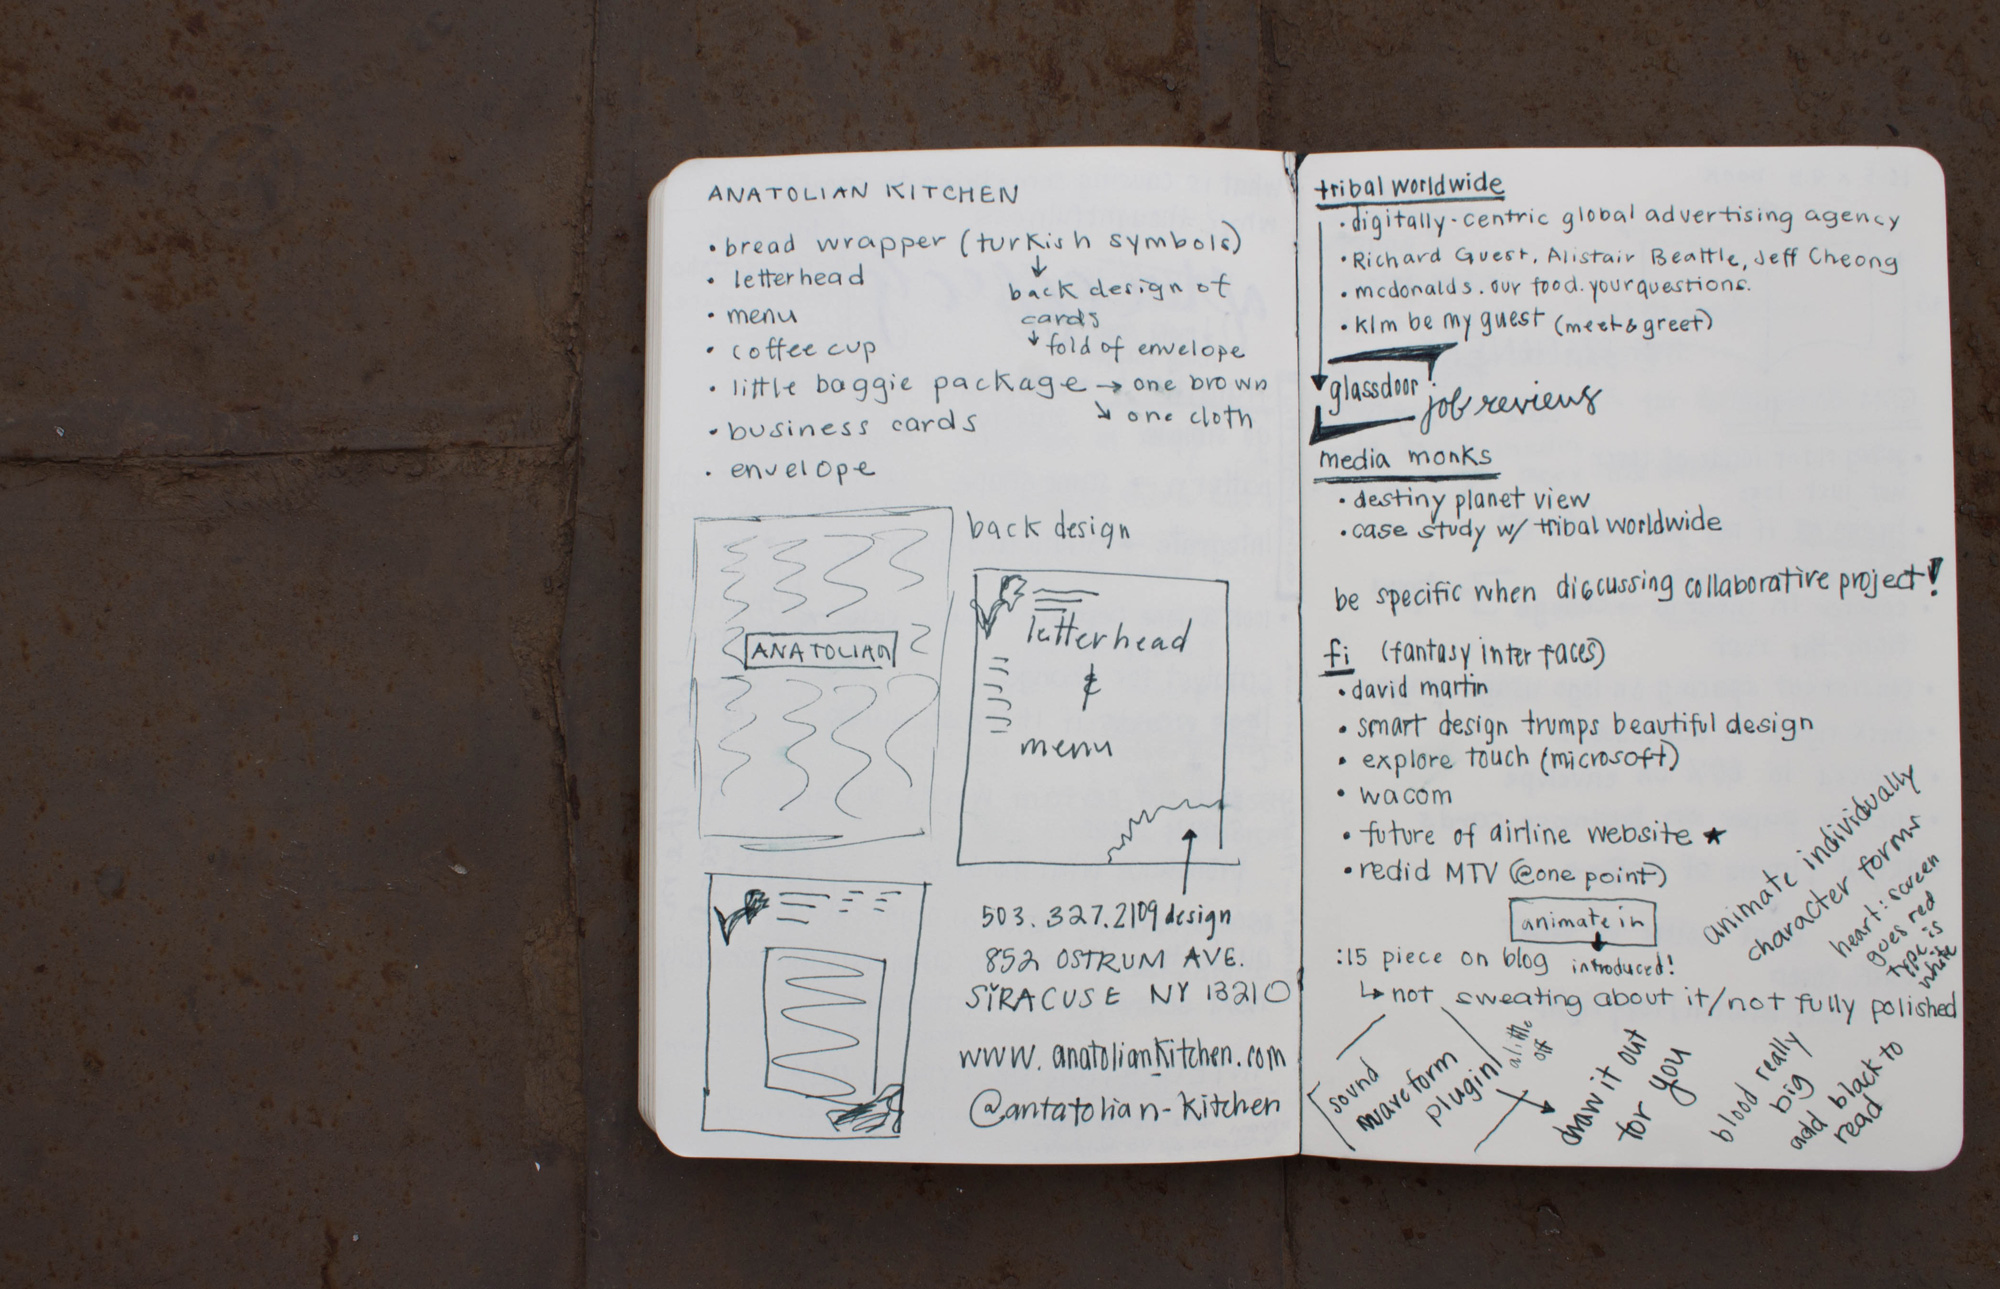 ANATOLIAN KITCHEN
• bread wrapper (turkish symbols)
↓
back design of
cards
↓ fold of envelope
• letterhead
• menu
• coffee cup
• little baggie package → one brown
↘ one cloth
• business cards
• envelope
ANATOLIAN
back design
letterhead
&
menu
503.327.2109 design
852 OSTRUM AVE.
SIRACUSE NY 13210
www.anatoliankitchen.com
@antatolian-kitchen
tribal worldwide
• digitally-centric global advertising agency
• Richard Guest, Alistair Beattle, Jeff Cheong
• mcdonalds. our food. your questions.
• klm be my guest (meet & greet)
glassdoor job reviews
media monks
• destiny planet view
• case study w/ tribal worldwide
be specific when discussing collaborative project!
fi (fantasy interfaces)
• david martin
• smart design trumps beautiful design
• explore touch (microsoft)
• wacom
• future of airline website ★
• redid MTV (@one point)
animate in
↓
introduced!
:15 piece on blog
↳ not sweating about it/not fully polished
animate individually
character forms
heart: screen
goes red
type is
white
sound
waveform
plugin
a little
off
draw it out
for you
blood really
big
add black to
read